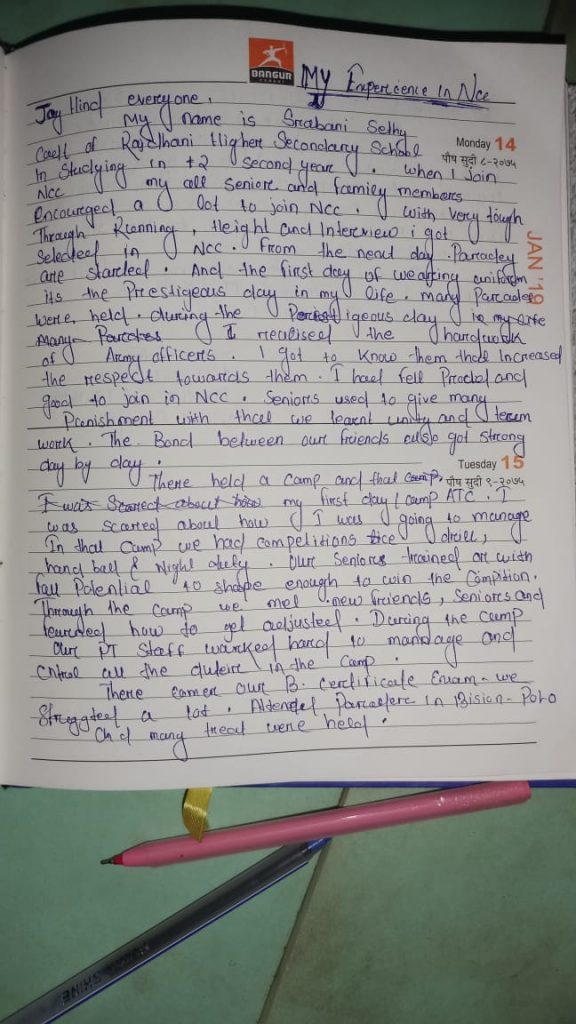 BANGUR
CEMENT
My Expereience In Ncc
Jay Hind everyone,
My name is Srabani Sethy
Monday 14
पौष सुदी ८-२०७५
Cadt of Rajdhani Higher Secondary School
In Studying in +2 second year. when I join
Ncc my all seniors and family members
Encourged a lot to join Ncc. with very tough
Through Running, Height and Interview i got
JAN '19
Selected in Ncc. From the next day Paradey
are starded. And the first day of wearing uniform
its the Prestigeous day in my life. many Parcades
were held. during the Prestigeous day in my life
Many Parades I realised the hardwork
of Army officers. I got to know them that Increased
the respect towards them. I had fell Proud and
good to join in Ncc. Seniors used to give many
Punishment with that we learnt unity and team
work. The Bond between our friends also got strong
day by day.
Tuesday 15
पौष सुदी ९-२०७५
There held a camp and that camp,
I was Scared about how my first day / camp ATC. I
was scared about how I was going to manage
In that Camp we had compelitions like drill,
hand ball & Night duty. Our Seniors trained at with
full Potential to shape enough to win the Compition.
Through the camp we met new friends, Seniors and
learned how to get adjusted. During the camp
Our PI Staff warked hard to manage and
Cntrol all the duteis in the Camp.
There camer our B. certificate Exam. we
Struggted a lot. Attended Paradere in Bision-Polo
many tread were held.